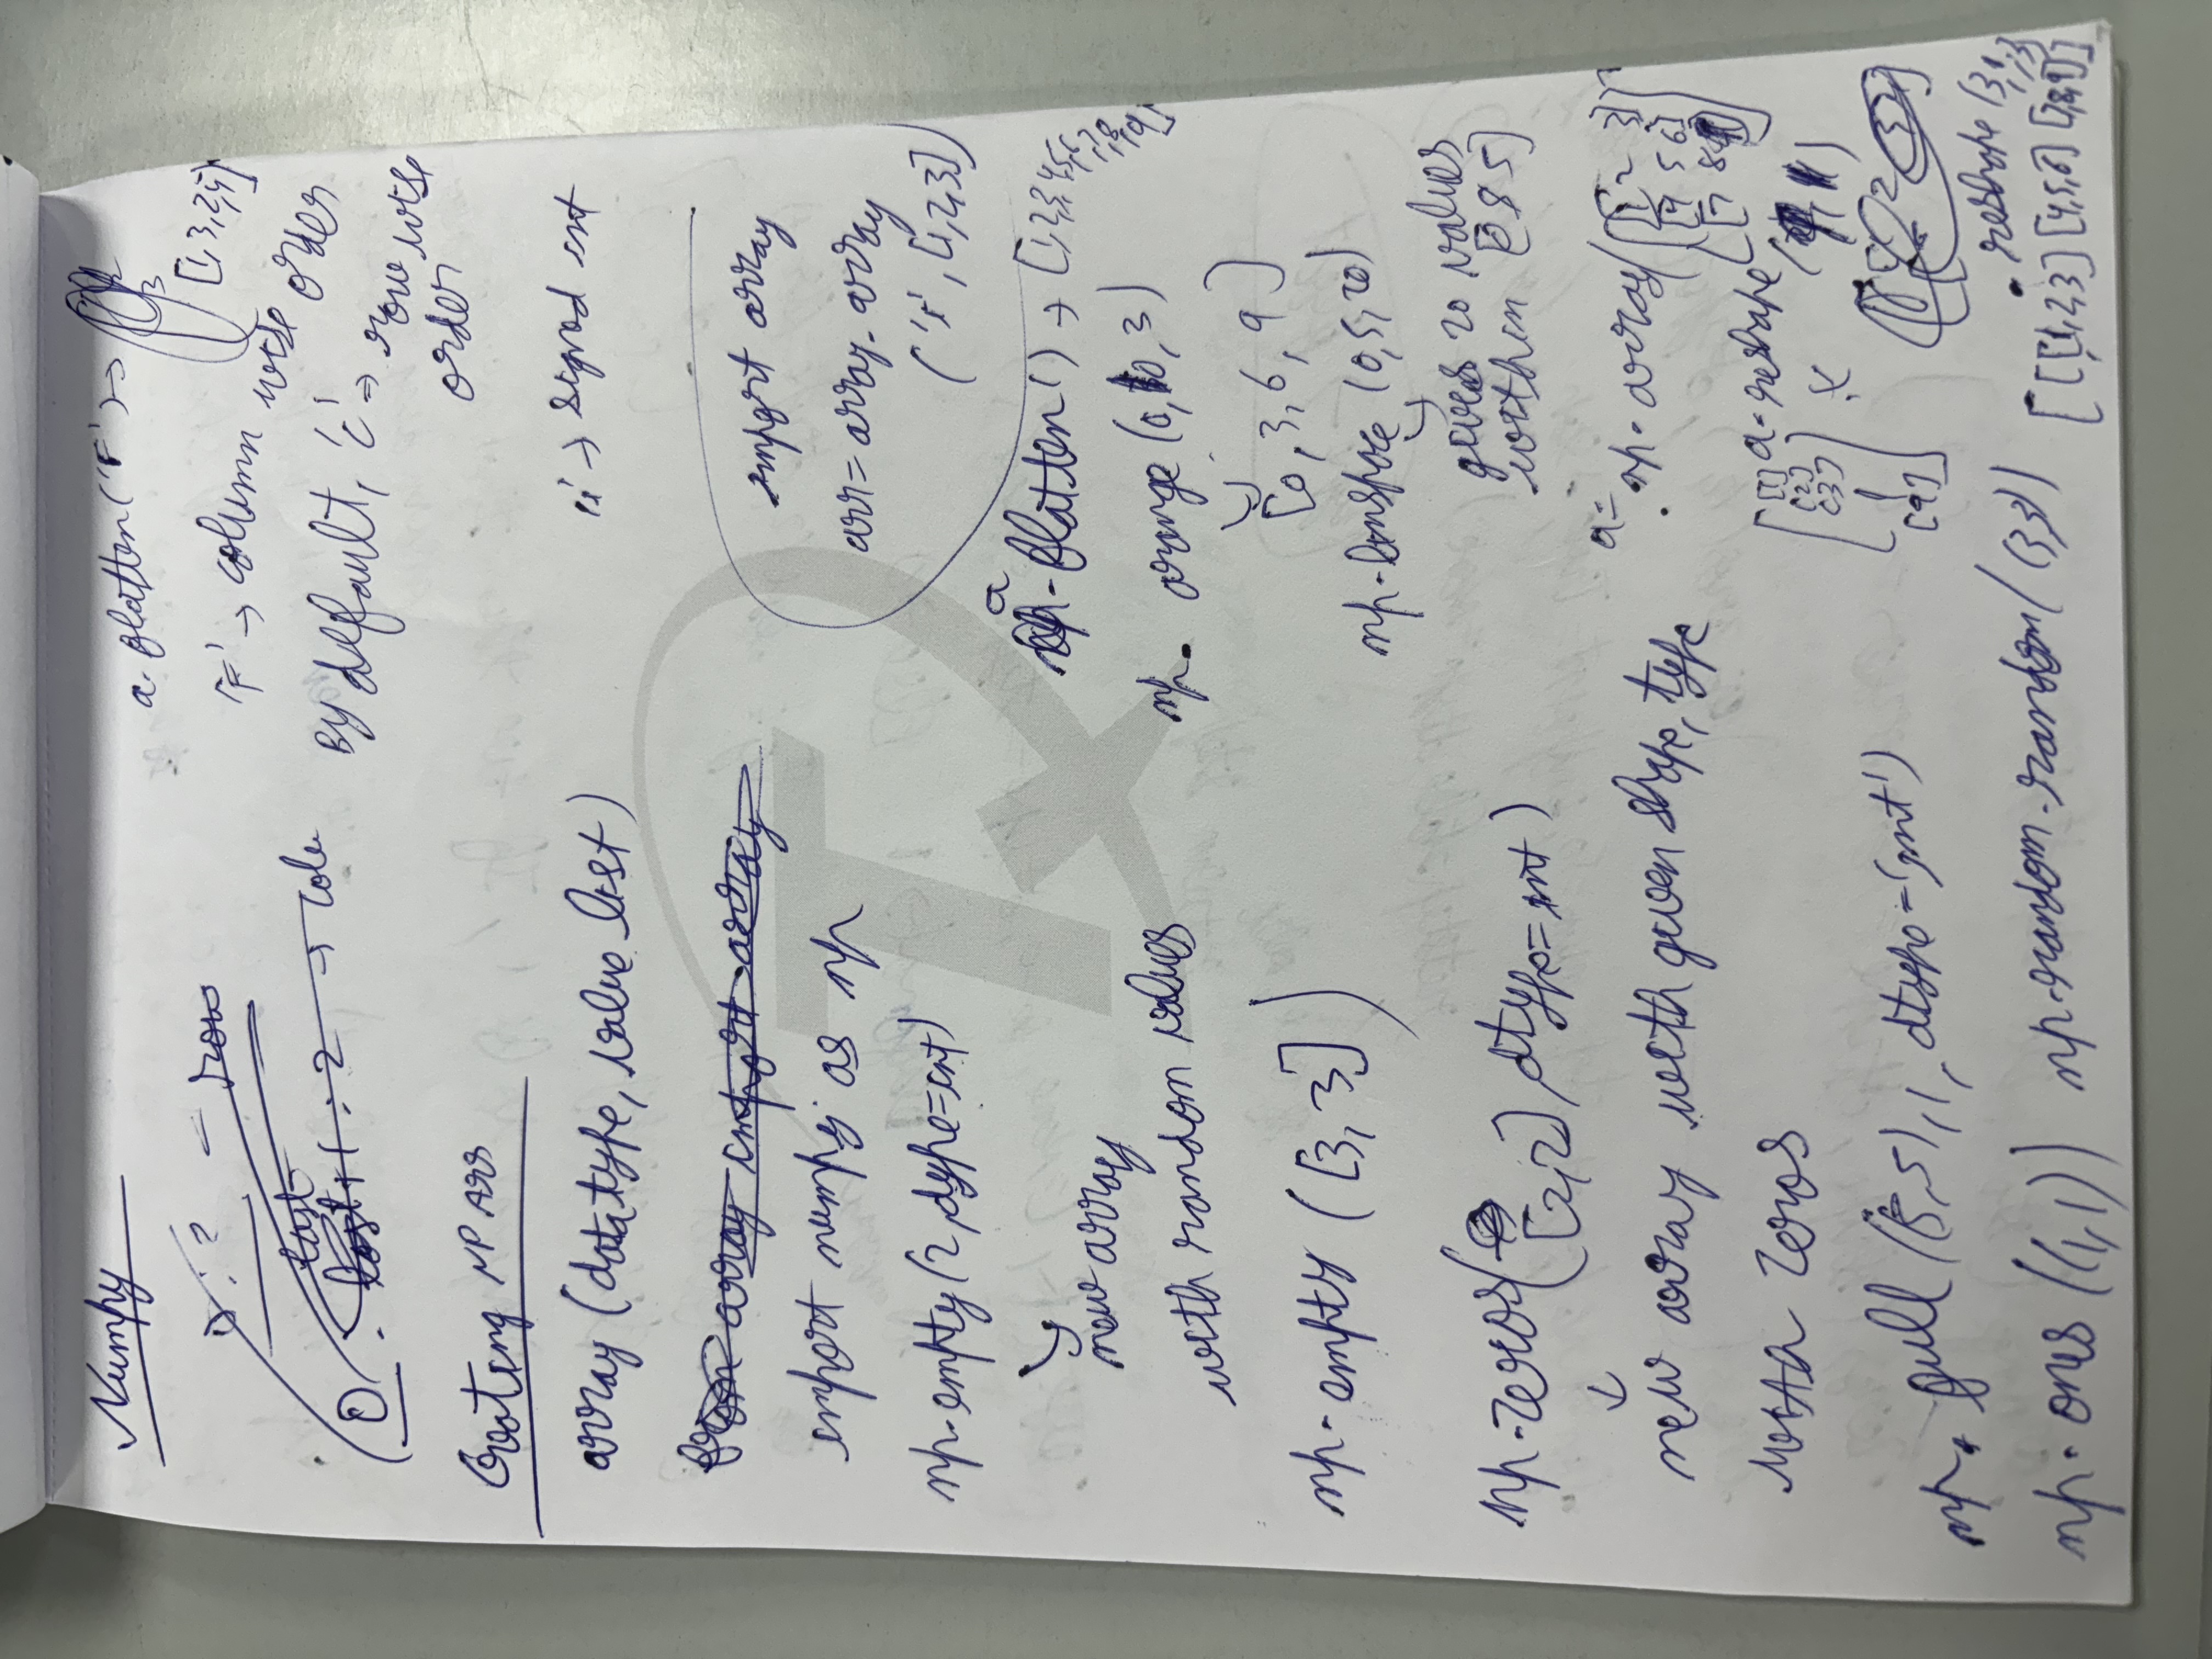 Numpy
: 2 - row
last
0 . last+1 : 2 → colu
Creating NP Arr
array (datatype, value list)
from array import array
import numpy as np
np.empty(2, dype=int)
new array
with random values
np.empty ([3, 3])
np.zeros([2,2], dtype=int)
new array with given shape, type
with zeros
np. full ((5,5),1, dtype='int')
np. ones ((1,1))
np.random.random((3,3))
a. flatten('F') →
[1,3,2,4]
'F' → column wise order
By default, 'C' → row wise
order
'i' → signed int
import array
arr= array. array
('i', [1,2,3])
a
. flatten() → [1,2,3,4,5,6,7,8,9]
np. arange (0, 10, 3)
[0, 3, 6, 9]
np.linspace (0,5,20)
gives 20 values
within [0 & 5]
a=
np. array([[1 2 3]
[4 5 6]
[7 8 9]])
a. reshape
[[1]
[2]
[3]
|
[9]]
. reshape (3,1,3)
[[[1,2,3] [4,5,6] [7,8,9]]]